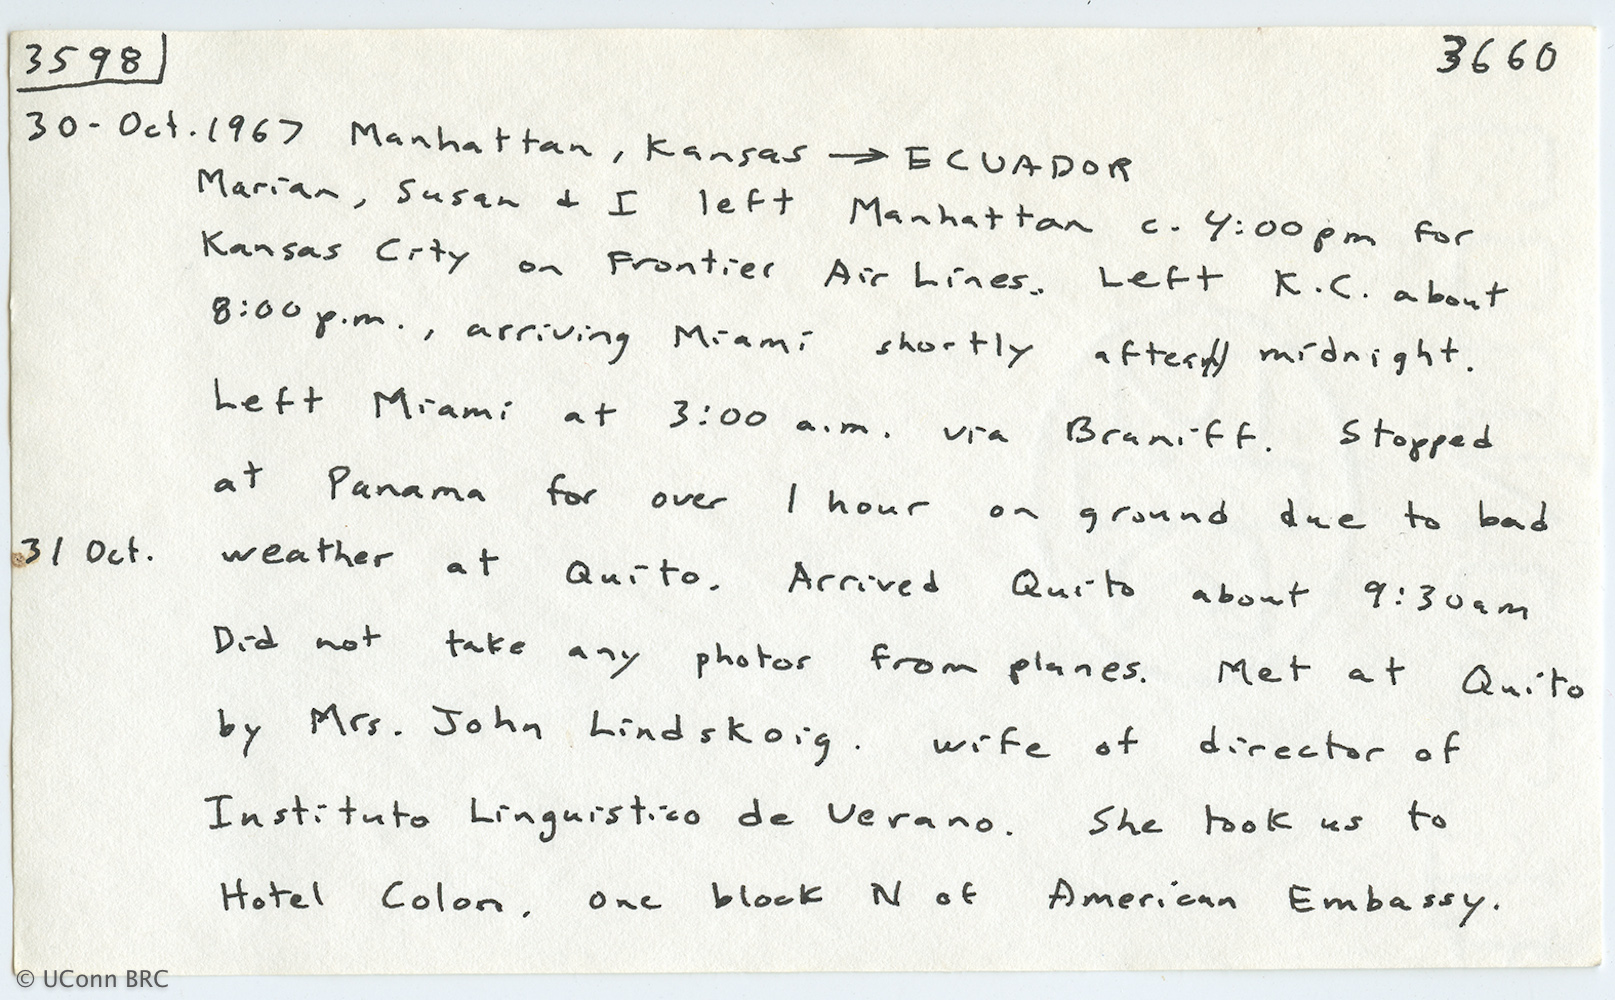 3598 3660
30-Oct. 1967 Manhattan, Kansas → ECUADOR
Marian, Susan & I left Manhattan c. 4:00pm for
Kansas City on Frontier Air Lines. Left K.C. about
8:00 p.m., arriving Miami shortly after midnight.
Left Miami at 3:00 a.m. via Braniff. Stopped
at Panama for over 1 hour on ground due to bad
31 Oct. weather at Quito. Arrived Quito about 9:30am
Did not take any photos from planes. Met at Quito
by Mrs. John Lindskoig. wife of director of
Instituto Linguistico de Verano. She took us to
Hotel Colon, one block N of American Embassy.
© UConn BRC